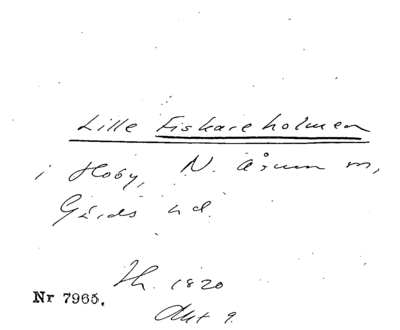 Lille Fiskareholmen
i Hoby, N. Åsum m,
Gärds hd.
Th. 1820
Akt 9.
Nr 7965.